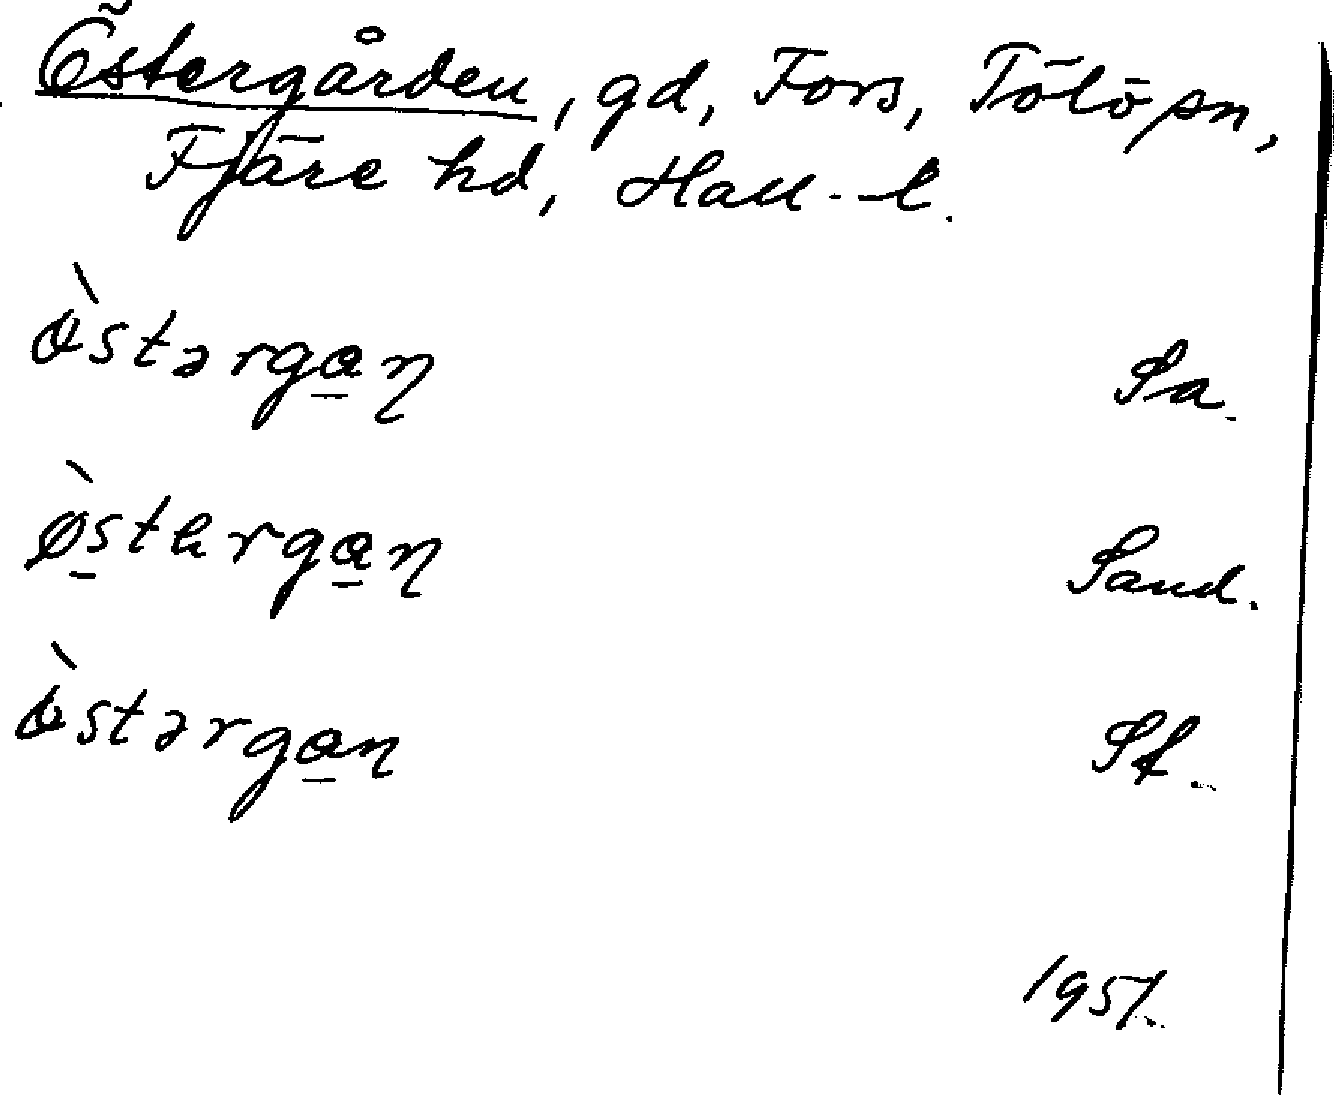 Östergården, gd, Fors, Tölö sn,
Fjäre hd, Hall. l.
ø̀stərga̲ɳ Sa.
ø̲̀stərga̲ɳ Sand.
ø̀stərga̲ɳ Sf.
1951.